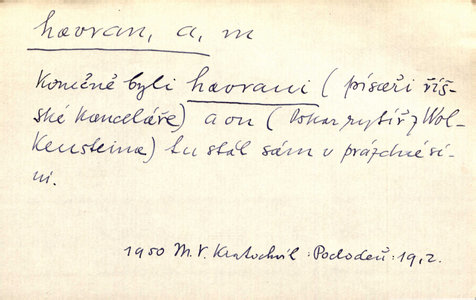 havran, a, m
Konečně byli havrani (písaři říš-
ské kanceláře) a on (Oskar rytíř z Wol-
kensteina) tu stál sám v prázdné sí-
ni.
1950 M. V. Kratochvíl: